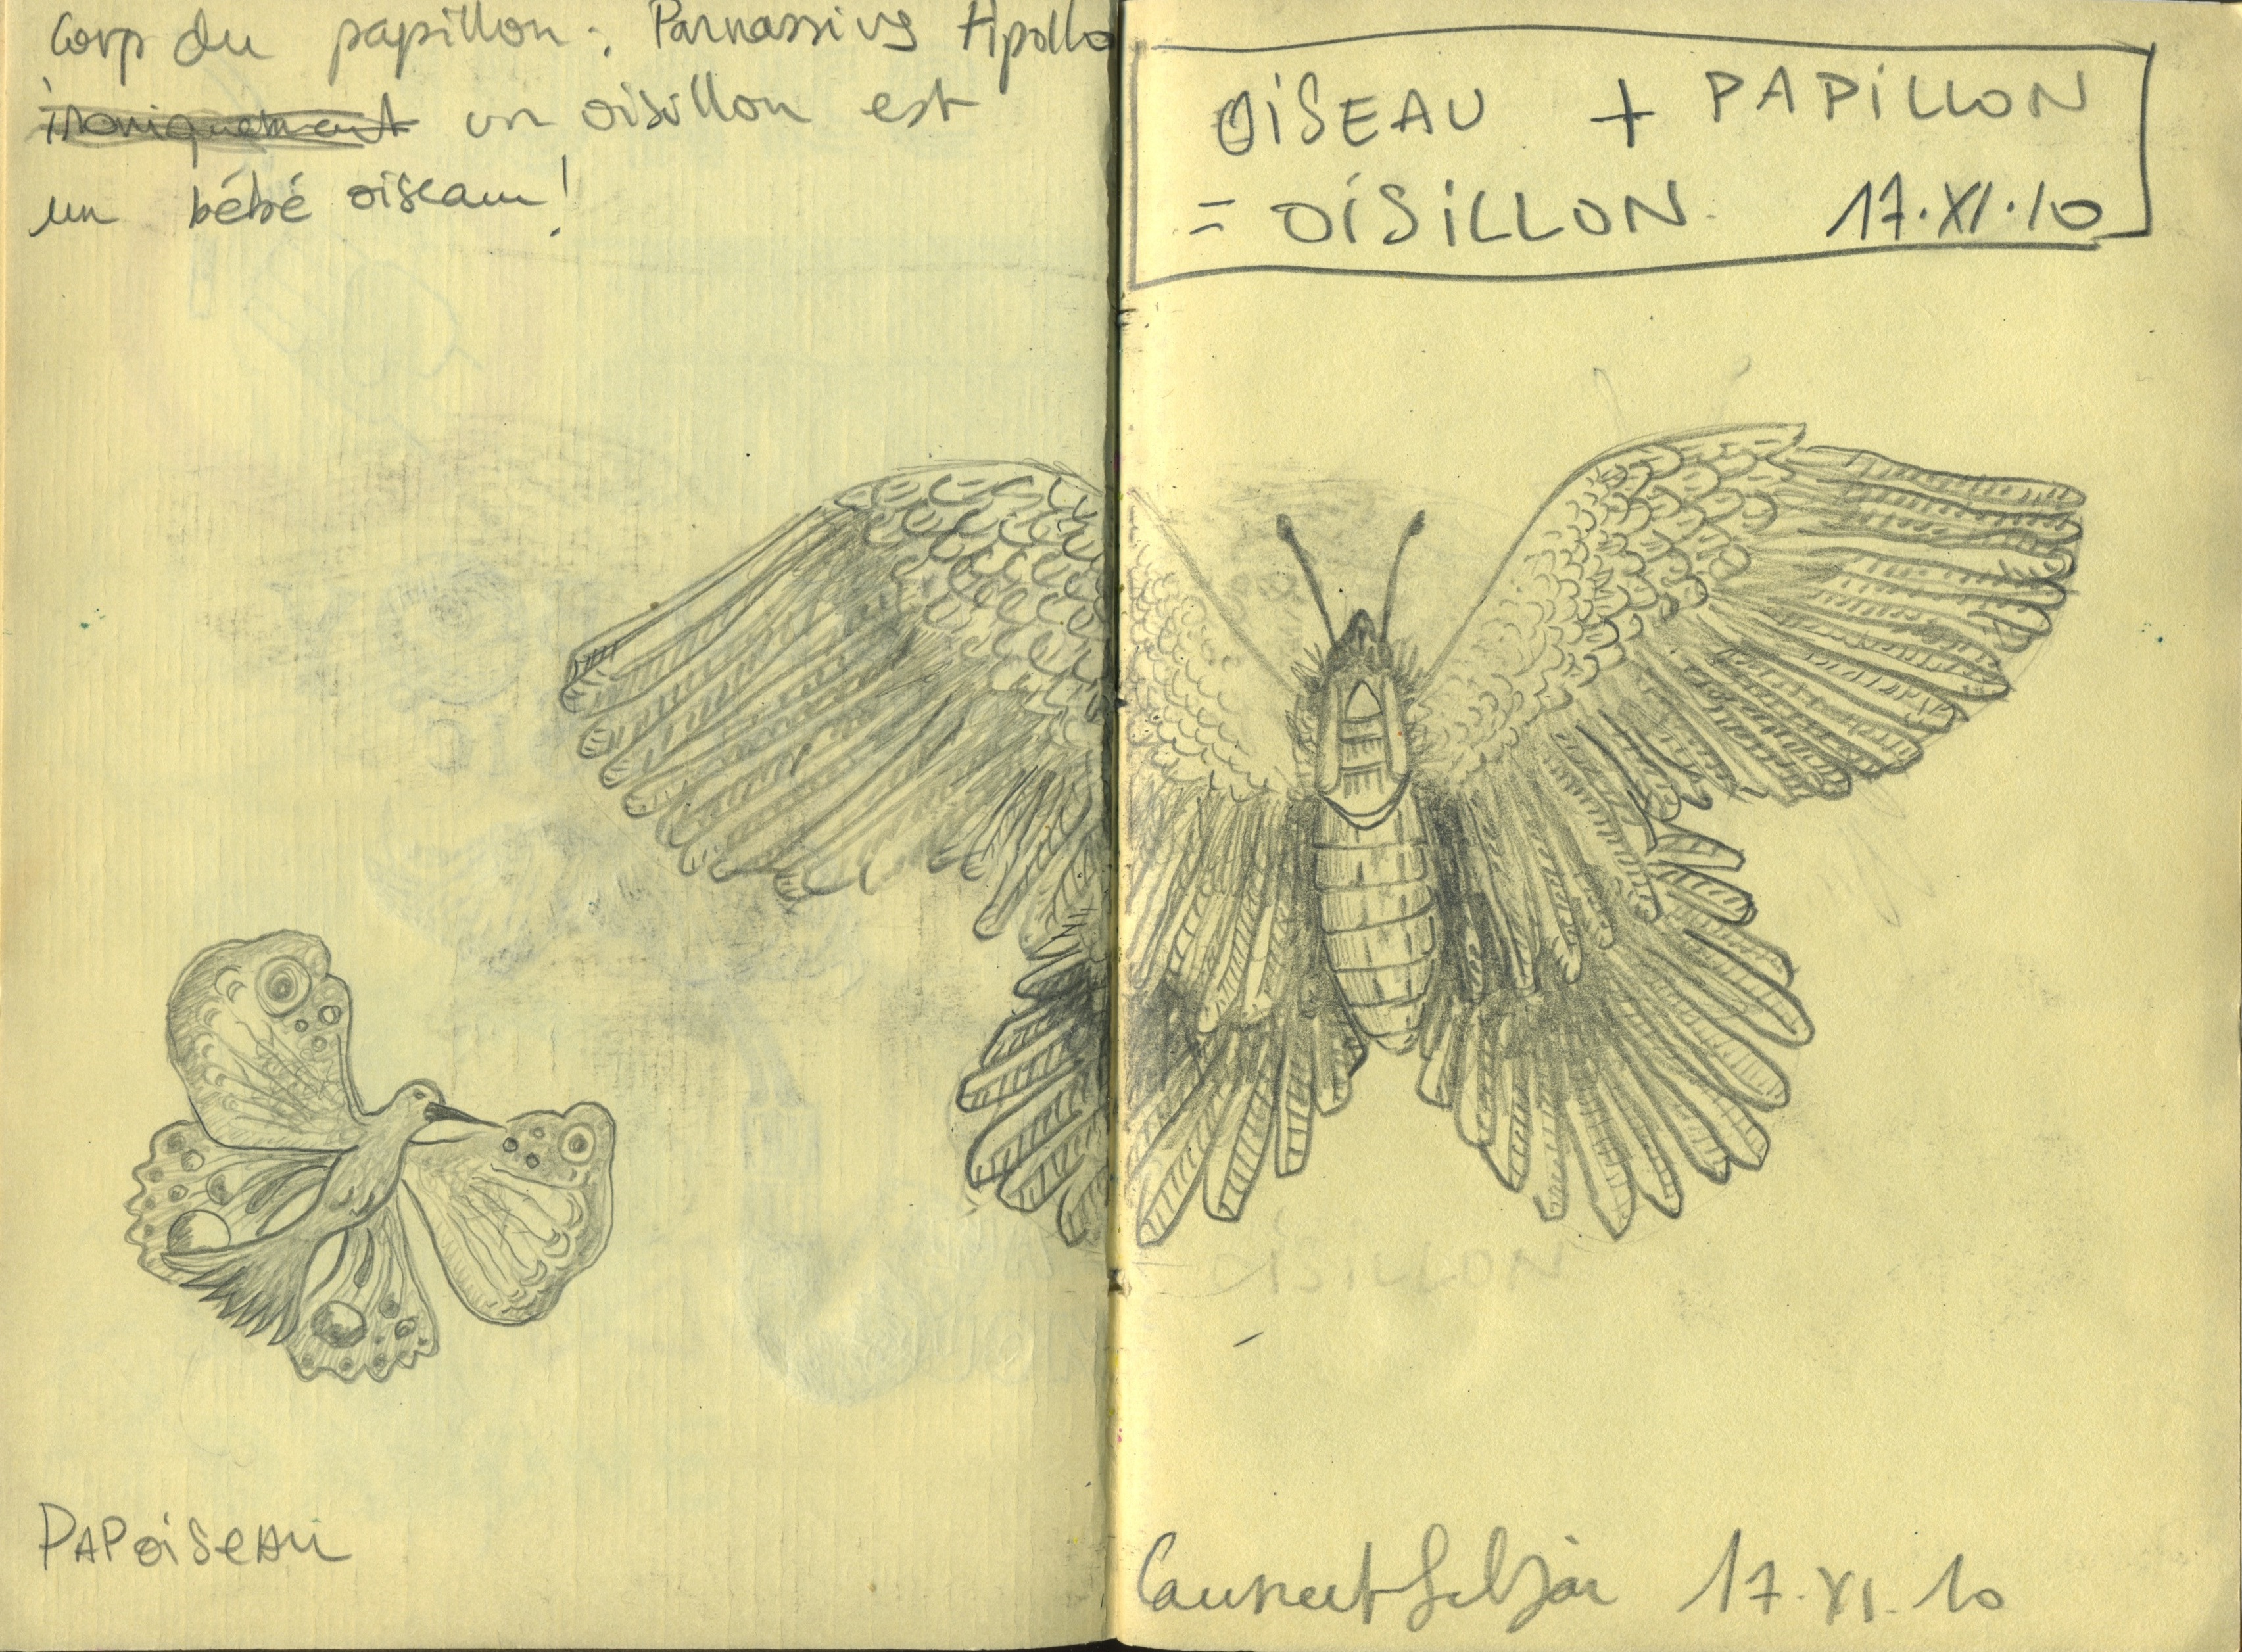 Corp du papillon : Parnassius Apollo
ironiquement un oisillon est
un bébé oiseau!
OiSEAU + PAPiLLON
= OiSiLLON 17.XI.10
OiSiLLON
PAPoiSeAu
Laurent 17.XI.10